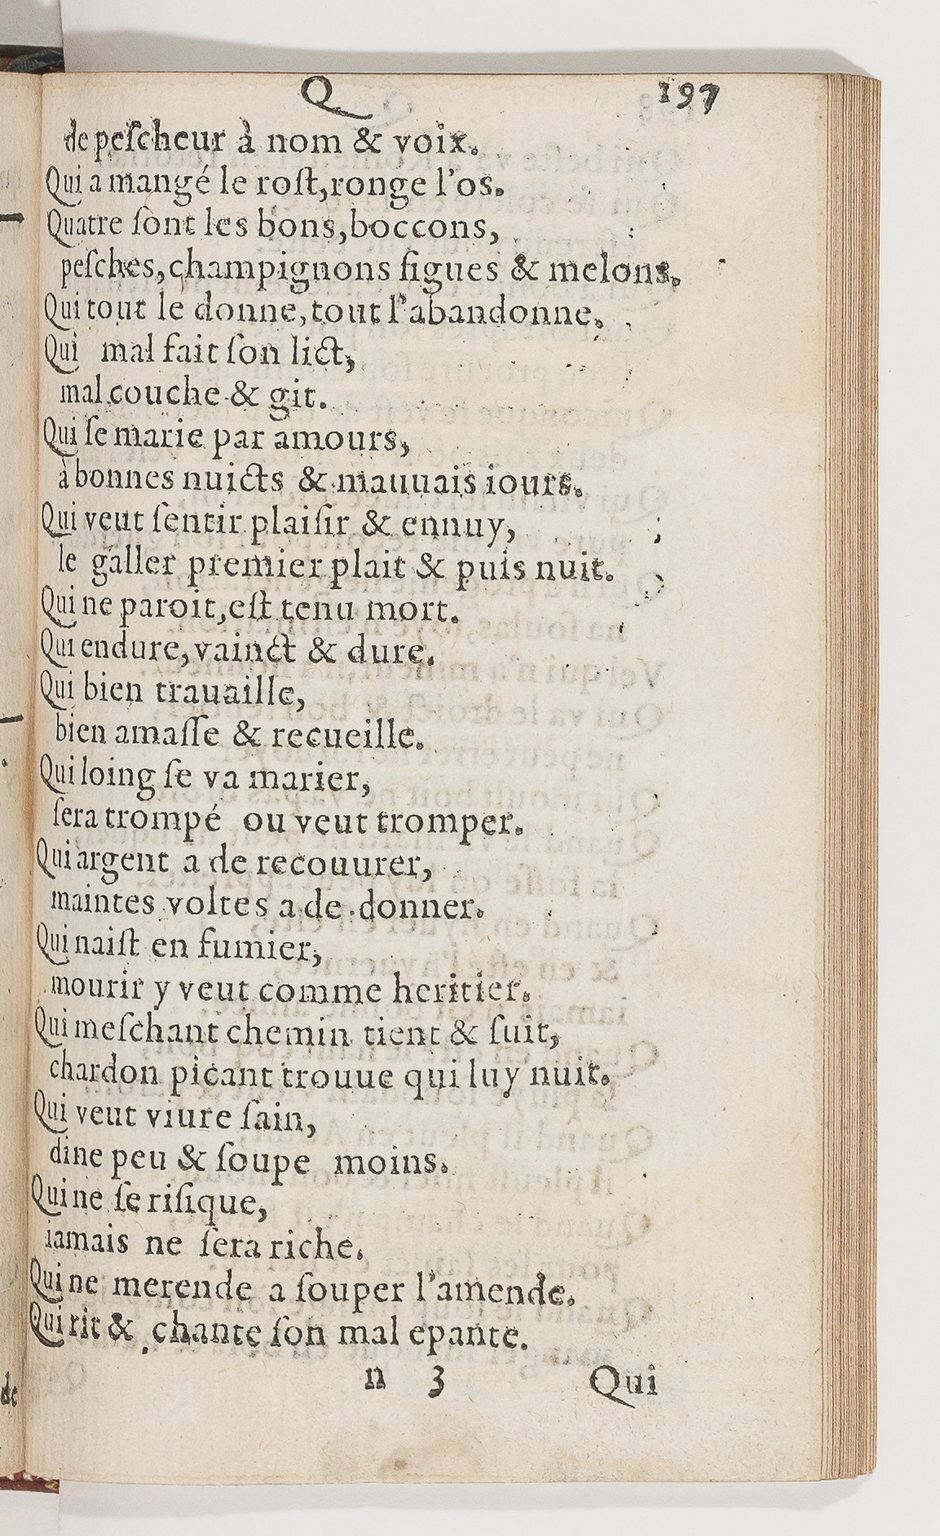 Q 197
de peſcheur à nom & voix.
Qui a mangé le roſt, ronge l'os.
Quatre ſont les bons, boccons,
peſches, champignons figues & melons.
Qui tout le donne, tout l'abandonne.
Qui mal fait ſon lict,
mal couche & git.
Qui ſe marie par amours,
à bonnes nuicts & mauuais iours.
Qui veut ſentir plaiſir & ennuy,
le galler premier plait & puis nuit.
Qui ne paroit, eſt tenu mort.
Qui endure, vainct & dure.
Qui bien trauaille,
bien amaſſe & recueille.
Qui loing ſe va marier,
ſera trompé ou veut tromper.
Qui argent a de recouurer,
maintes voltes a de donner.
Qui naiſt en fumier,
mourir y veut comme heritier.
Qui meſchant chemin tient & ſuit,
chardon picant trouue qui luy nuit.
Qui veut viure ſain,
dine peu & ſoupe moins.
Qui ne ſe riſique,
iamais ne ſera riche.
Qui ne merende a ſouper l'amende.
Qui rit & chante ſon mal epante.
n 3 Qui
de